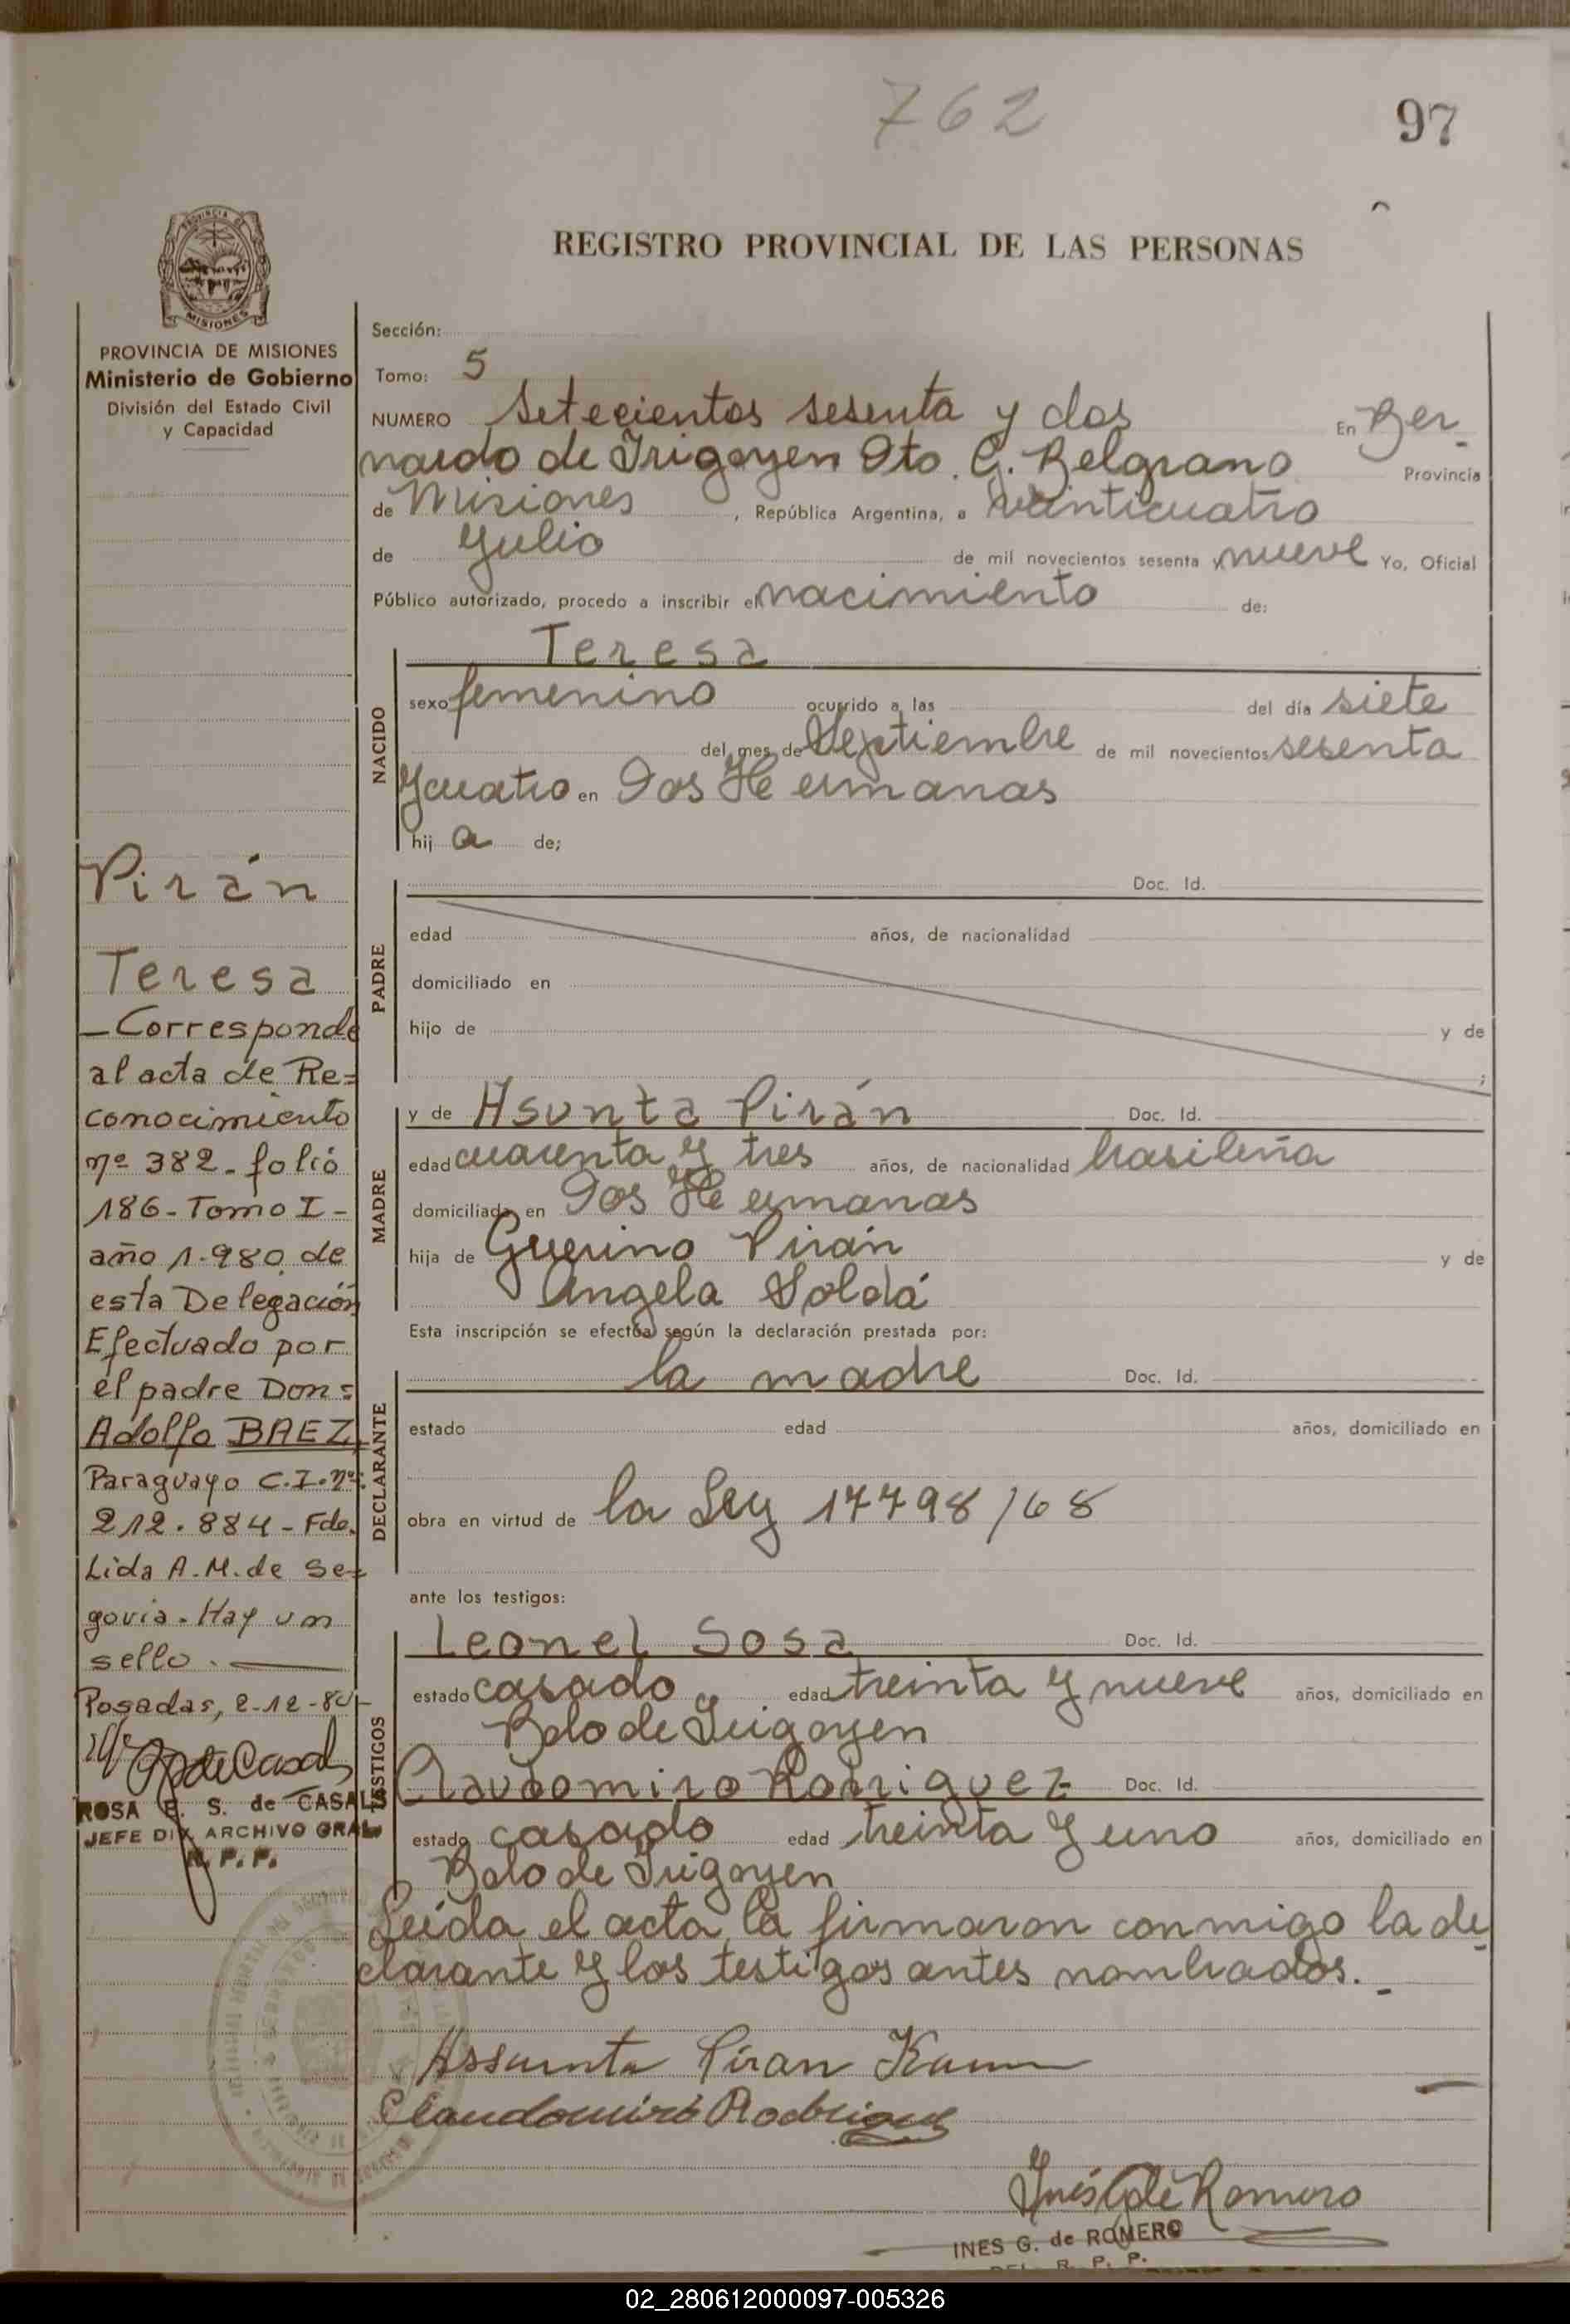 762
97
REGISTRO PROVINCIAL DE LAS PERSONAS
PROVINCIA DE
MISIONES
PROVINCIA DE MISIONES
Ministerio de Gobierno
División del Estado Civil
y Capacidad
Pirán
Teresa
- Corresponde
al acta de Re=
conocimiento
nº 382 - folio
186 - Tomo I -
año 1.980 de
esta Delegación
Efectuado por
el padre Don =
Adolfo BAEZ,
Paraguayo C.I. nº:
212.884 - Fdo.
Lida A. M. de Se=
govia. Hay un
sello.
Posadas, 2-12-80-
ROSA E. S. de CASALS
JEFE DIV. ARCHIVO GRAL.
R. P. P.
Sección:
Tomo: 5
NUMERO Setecientos sesenta y dos En Ber-
nardo de Irigoyen Dto. G. Belgrano Provincia
de Misiones, República Argentina, a veinticuatro
de Julio de mil novecientos sesenta y nueve Yo, Oficial
Público autorizado, procedo a inscribir el nacimiento de:
NACIDO
Teresa
sexo femenino ocurrido a las del día siete
del mes de Septiembre de mil novecientos sesenta
y cuatro en Dos Hermanas
hij a de;
PADRE
Doc. Id.
edad años, de nacionalidad
domiciliado en
hijo de y de
;
MADRE
y de Asunta Pirán Doc. Id.
edad cuarenta y tres años, de nacionalidad brasileña
domiciliada en Dos Hermanas
hija de Guerino Pirán y de
Angela Soldá
Esta inscripción se efectúa según la declaración prestada por:
DECLARANTE
la madre Doc. Id.
estado edad años, domiciliado en
obra en virtud de la Ley 17798/68
ante los testigos:
TESTIGOS
Leonel Sosa Doc. Id.
estado casado edad treinta y nueve años, domiciliado en
Bdo de Irigoyen
Claudomiro Rodriguez Doc. Id.
estado casado edad treinta y uno años, domiciliado en
Bdo de Irigoyen
Leída el acta la firmaron conmigo la de-
clarante y los testigos antes nombrados.-
Assunta Piran
Claudomiro Rodriguez
Inés G de Romero
INES G. de ROMERO
DEL. R. P. P.
02_280612000097-005326